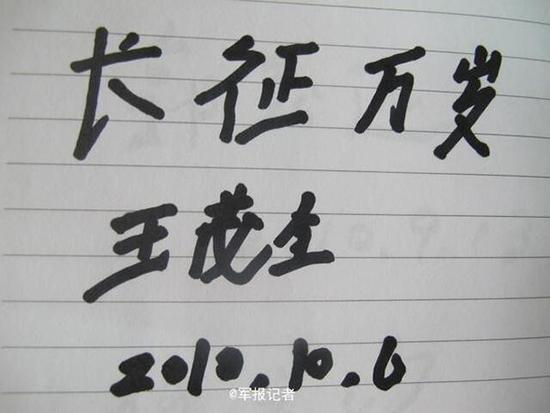 长征万岁
王茂全
2010.10.6
@军报记者